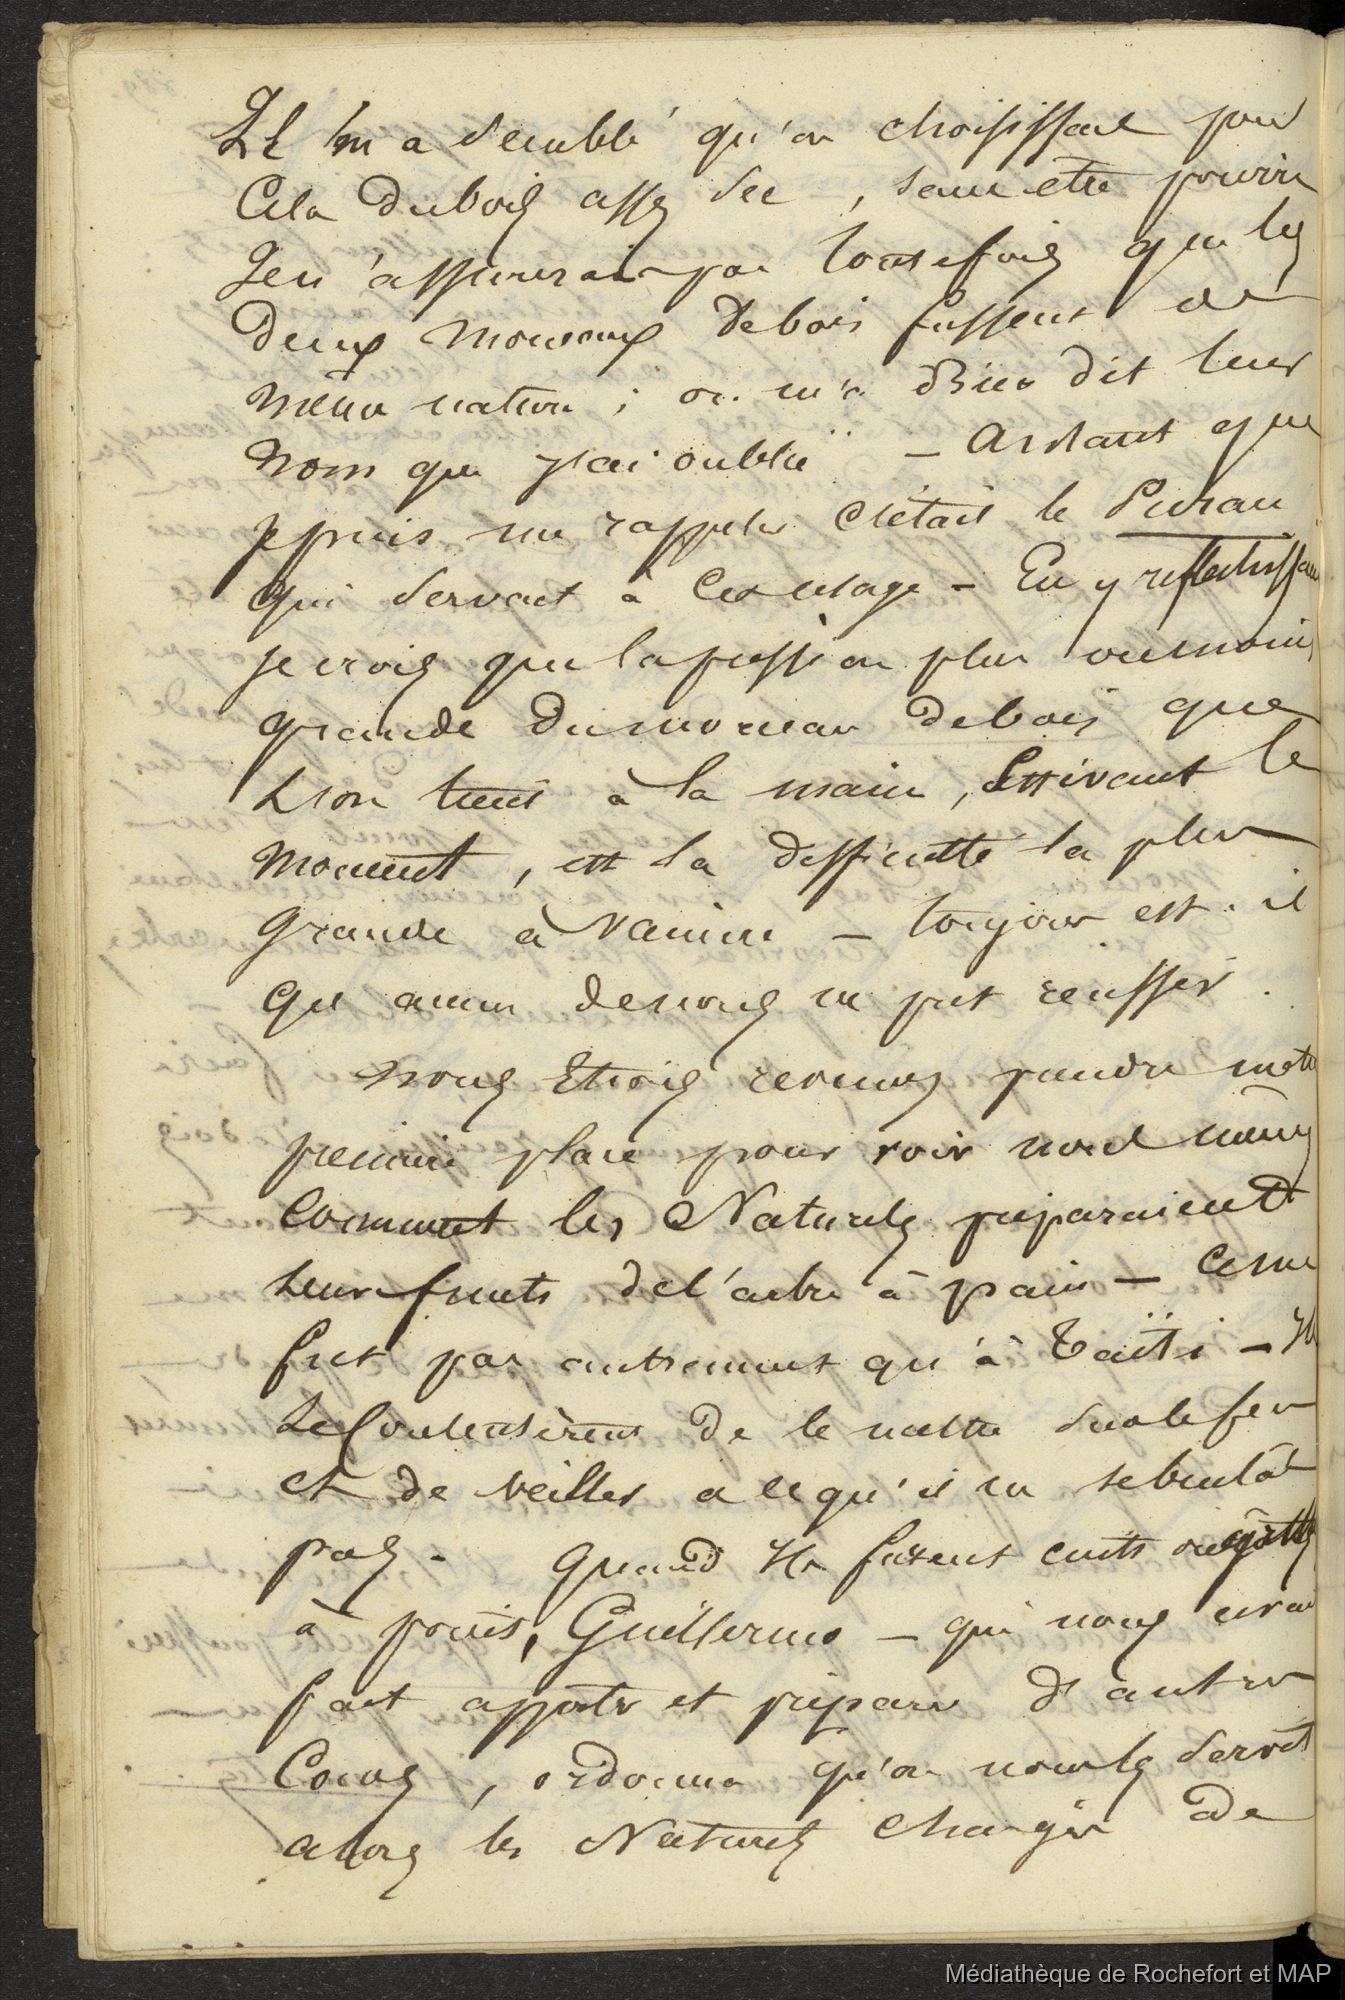 Il m'a semblé qu'on choisissait pour
Cela du bois assez sec, sans etre pourri
Je n'assurerai pas toutefois que les
deux morceaux de bois fussent de
même nature ; on m'a Bien dit leur
nom que j'ai oublié – autant que
je puis me rappeler c'était le Purau
qui servait à cet usage – En y reflechissant
je crois que la pression plus ou moins
grande du morceau de bois que
l'on tient à la main, suivant le
moment, est la difficulté la plus
grande à vaincre – toujours est-il
que aucun de nous ne put reussir.
nous Etions revenus prendre notre
premiere place pour voir nous mêmes
Comment les Naturels préparaient
leurs fruits de l'arbre à pain – Ce ne
fut pas autrement qu'à Taïti – Ils
se Contentèrent de le mettre sur le feu
et de veiller a ce qu'il ne se brulât
pas. quand ils furent cuits
à point, Guillermo – qui nous avait
fait apporter et préparer d'autres
Cocos, ordonna qu'on nous les servit
alors les Naturels chargés de
Médiathèque de Rochefort et MAP